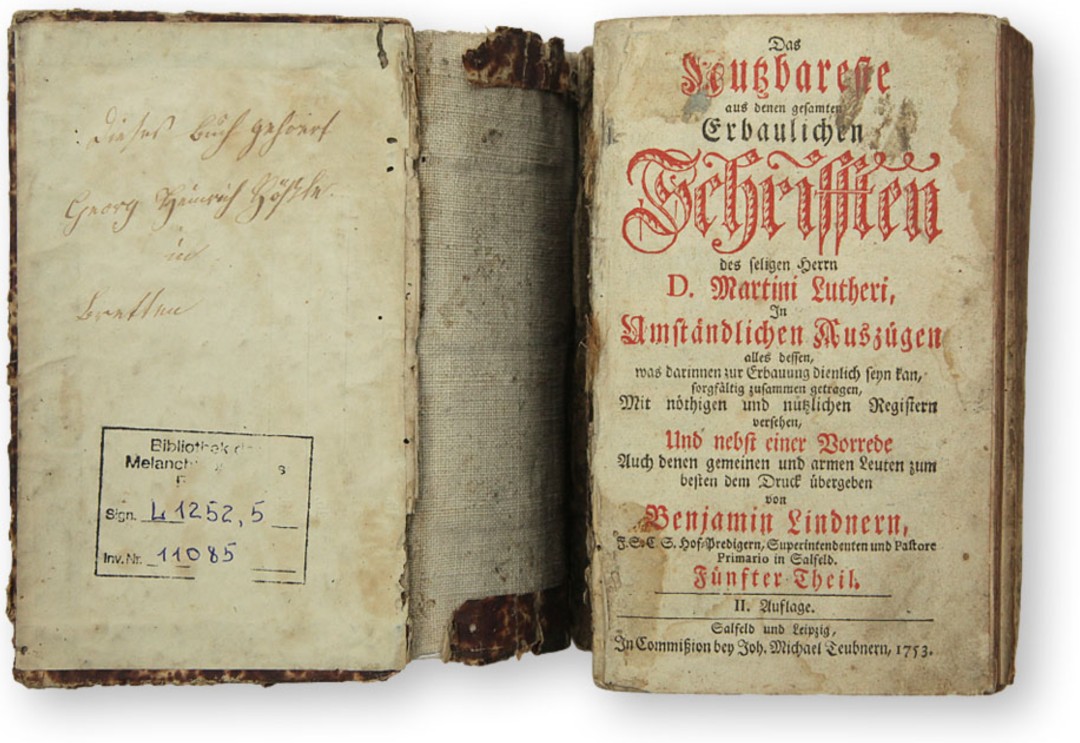 Dieses Buch gehoert
Georg Heinrich
in
Bretten
Bibliothek
Sign. L 1252,5
Inv. Nr. 11085
Das
Nutzbareste
aus denen gesamten
Erbaulichen
Schrifften
des seligen Herrn
D. Martini Lutheri,
In
Umständlichen Auszügen
alles dessen,
was darinnen zur Erbauung dienlich seyn kan,
sorgfältig zusammen getragen,
Mit nöthigen und nützlichen Registern
versehen,
Und nebst einer Vorrede
Auch denen gemeinen und armen Leuten zum
besten dem Druck übergeben
von
Benjamin Lindnern,
F. S. C. S. Hof-Predigern, Superintendenten und Pastore
Primario in Salfeld.
Fünfter Theil.
II. Auflage.
Salfeld und Leipzig,
In Commißion bey Joh. Michael Teubnern, 1753.